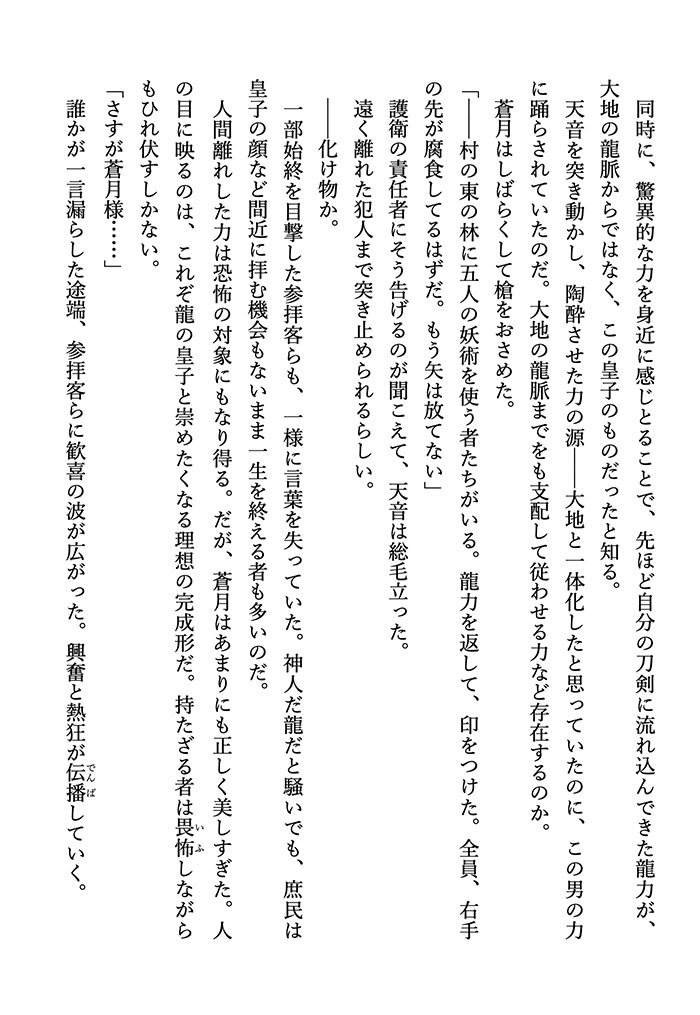 同時に、驚異的な力を身近に感じとることで、先ほど自分の刀剣に流れ込んできた龍力が、
大地の龍脈からではなく、この皇子のものだったと知る。
　天音を突き動かし、陶酔させた力の源――大地と一体化したと思っていたのに、この男の力
に踊らされていたのだ。大地の龍脈までをも支配して従わせる力など存在するのか。
　蒼月はしばらくして槍をおさめた。
「――村の東の林に五人の妖術を使う者たちがいる。龍力を返して、印をつけた。全員、右手
の先が腐食してるはずだ。もう矢は放てない」
　護衛の責任者にそう告げるのが聞こえて、天音は総毛立った。
　遠く離れた犯人まで突き止められるらしい。
　――化け物か。
　一部始終を目撃した参拝客らも、一様に言葉を失っていた。神人だ龍だと騒いでも、庶民は
皇子の顔など間近に拝む機会もないまま一生を終える者も多いのだ。
　人間離れした力は恐怖の対象にもなり得る。だが、蒼月はあまりにも正しく美しすぎた。人
の目に映るのは、これぞ龍の皇子と崇めたくなる理想の完成形だ。持たざる者は畏怖いふしながら
もひれ伏すしかない。
「さすが蒼月様……」
　誰かが一言漏らした途端、参拝客らに歓喜の波が広がった。興奮と熱狂が伝播でんぱしていく。